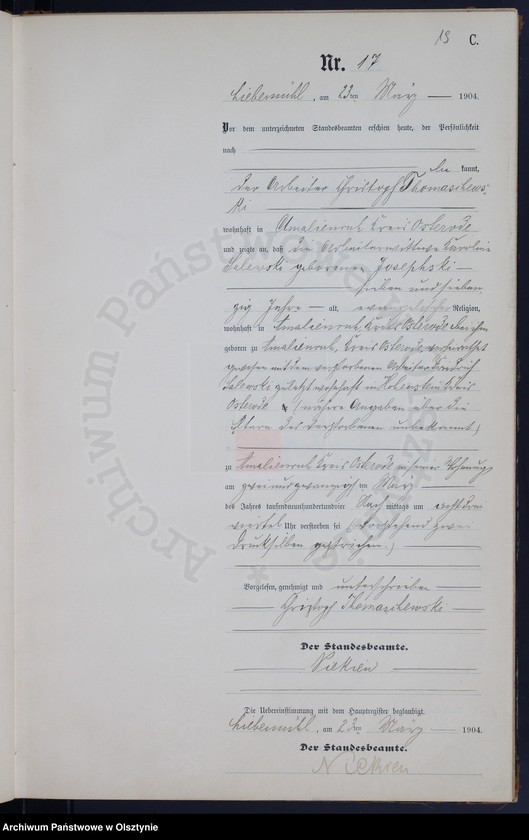 19 C.
Nr. 17
Liebemühl, am 23ten März 1904.
Vor dem unterzeichneten Standesbeamten erschien heute, der Persönlichkeit
nach
be kannt,
der Arbeiter Christoph Thomaschews-
ki
wohnhaft in Amalienruh Kreis Osterode
und zeigte an, daß die Arbeiterwittwe Karoline
Salewski geborenen Josephski
sieben und sieben
zig Jahre alt, evangelischer Religion,
wohnhaft in Amalienruh, Kreis Osterode
geboren zu Amalienruh, Kreis Osterode, verheirathet
gewesen mit dem verstorbenen Arbeiter Friedrich
Salewski zuletzt wohnhaft in Kreis
Osterode (nähere Angaben über die
Eltern der Verstorbenen unbekannt)
zu Amalienruh Kreis Osterode in seiner Wohnung
am zweiundzwanzigsten März
des Jahres tausendneunhundertundvier Nachmittags um acht drei
viertel Uhr verstorben sei (Vorstehend zwei
Drucksilben gestrichen.)
Vorgelesen, genehmigt und unterschrieben
Christoph Thomaschewski
Der Standesbeamte.
Die Uebereinstimmung mit dem Hauptregister beglaubigt.
Liebemühl, am 23ten März 1904.
Der Standesbeamte.
Archiwum Państwowe w Olsztynie
Archiwum Państwowe w Olsztynie